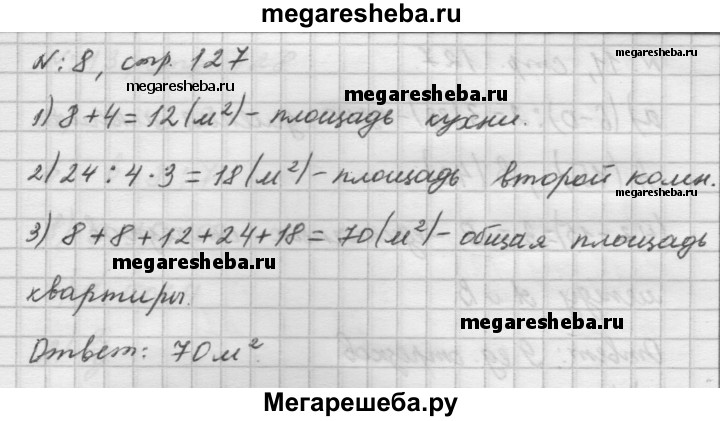 megaresheba.ru
N:8, стр. 127
megaresheba.ru
megaresheba.ru
megaresheba.ru
1) 8+4=12(м²)-площадь кухни.
2) 24:4·3=18(м²)-площадь второй комн.
megaresheba.ru
3) 8+8+12+24+18=70(м²)-общая площадь
megaresheba.ru
квартиры.
megaresheba.ru
Ответ: 70м².
Мегарешеба.ру